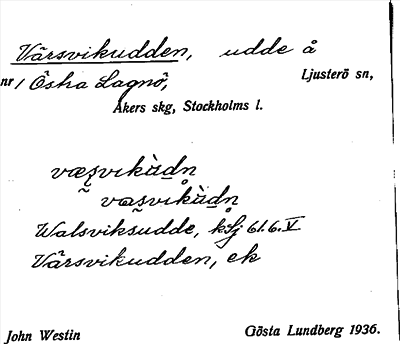 Vårsvikudden, udde å
nr 1 Östra Lagnö, Ljusterö sn,
Åkers skg, Stockholms l.
væʂvikùdn
væʂvikùdn
Walsviksudde, kSj 61.6.V
Vårsvikudden, ek
John Westin Gösta Lundberg 1936.